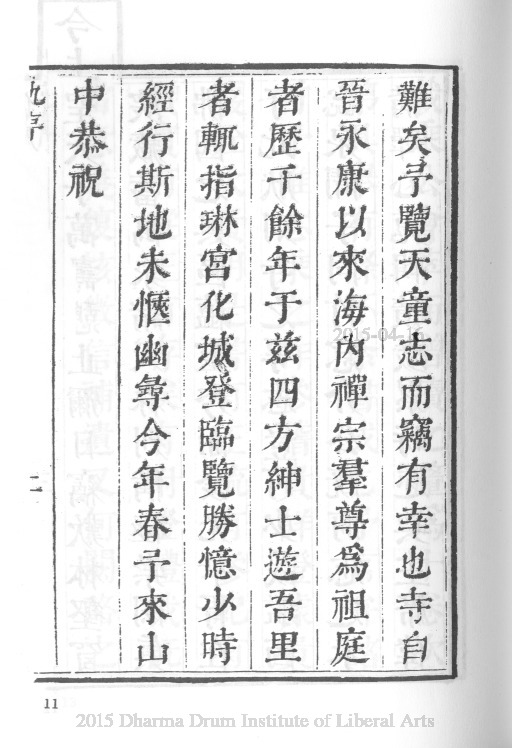 難矣予覽天童志而竊有幸也寺自
晉永康以來海內禪宗羣尊爲祖庭
者歷千餘年于兹四方紳士遊吾里
者輒指琳宮化城登臨覽勝憶少時
經行斯地未愜幽尋今年春予來山
中恭祝
序
二
2015-04-16
11
2015 Dharma Drum Institute of Liberal Arts